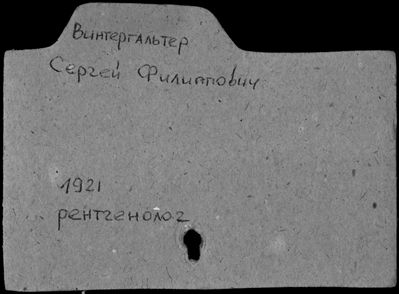 Винтергальтер
Сергей Филиппович
1921
рентгенолог